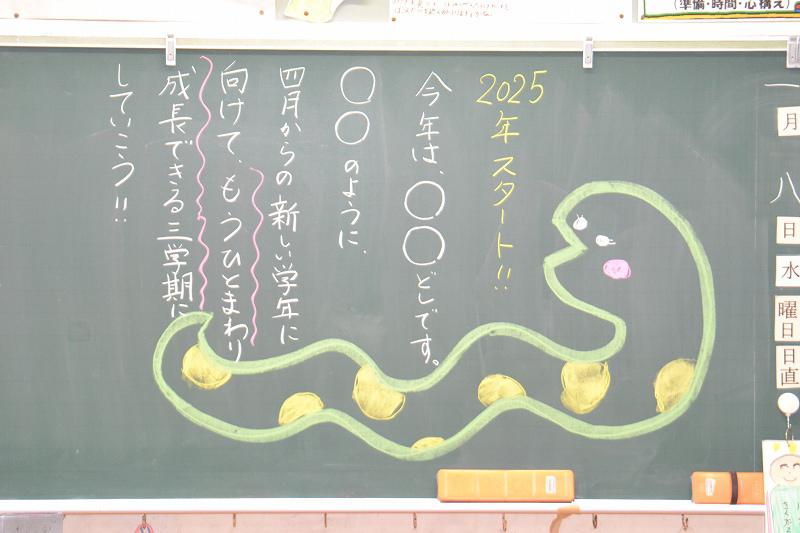 2025年スタート!!
今年は、〇〇どしです。
〇〇のように、
四月からの新しい学年に
向けて、もうひとまわり
成長できる三学期に
していこう!!
(準備・時間・心構え)
一
月
八
日
水
曜
日
日
直